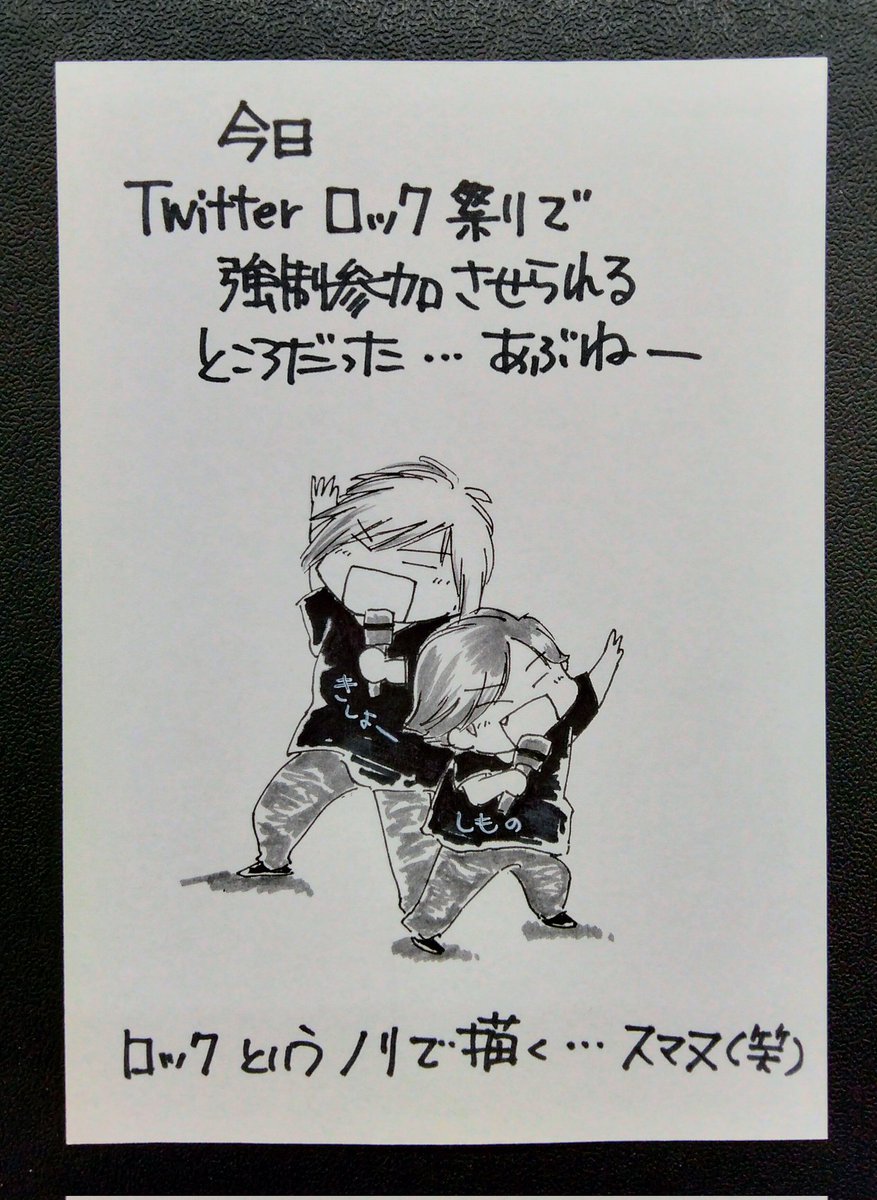 今日
Twitter ロック祭りで
強制参加させられる
ところだった… あぶねー
きしょー
しもの
ロックというノリで描く… スマヌ(笑)